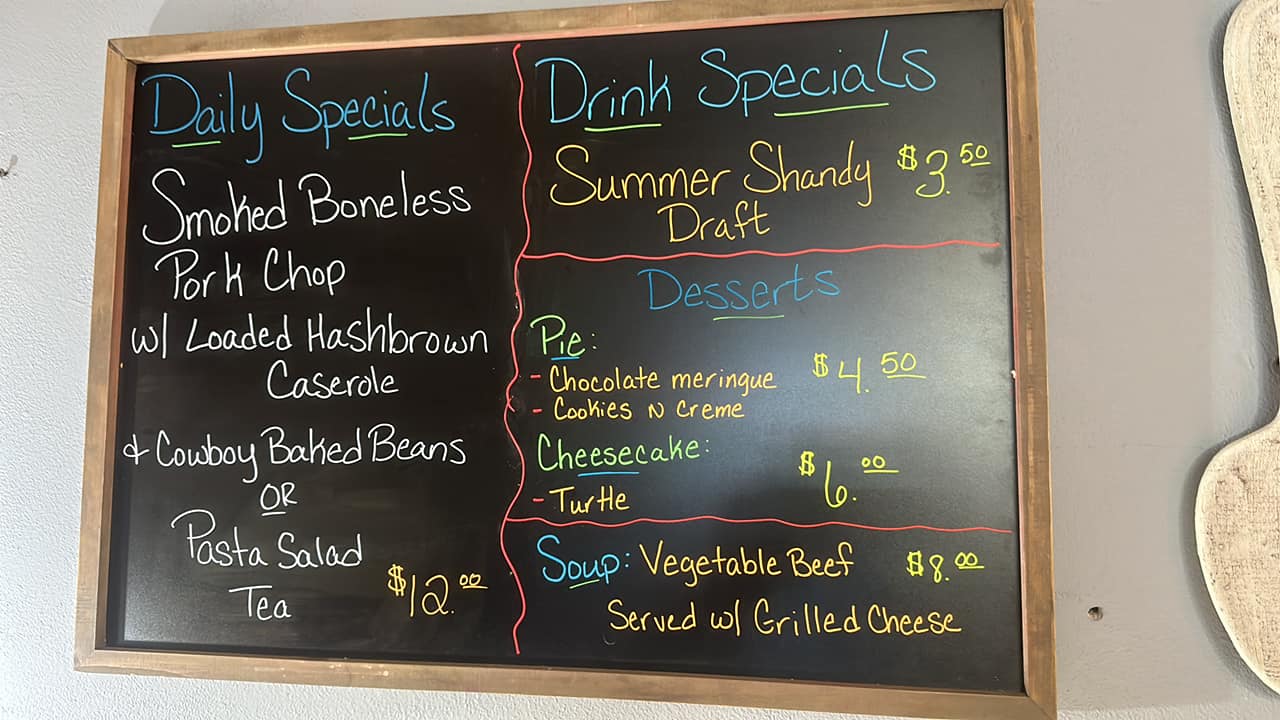 Daily Specials
Smoked Boneless
Pork Chop
w/ Loaded Hashbrown
Caserole
& Cowboy Baked Beans
OR
Pasta Salad
Tea $12.00
Drink Specials
Summer Shandy $3.50
Draft
Desserts
Pie:
- Chocolate meringue $4.50
- Cookies N Creme
Cheesecake: $6.00
- Turtle
Soup: Vegetable Beef $8.00
Served w/ Grilled Cheese